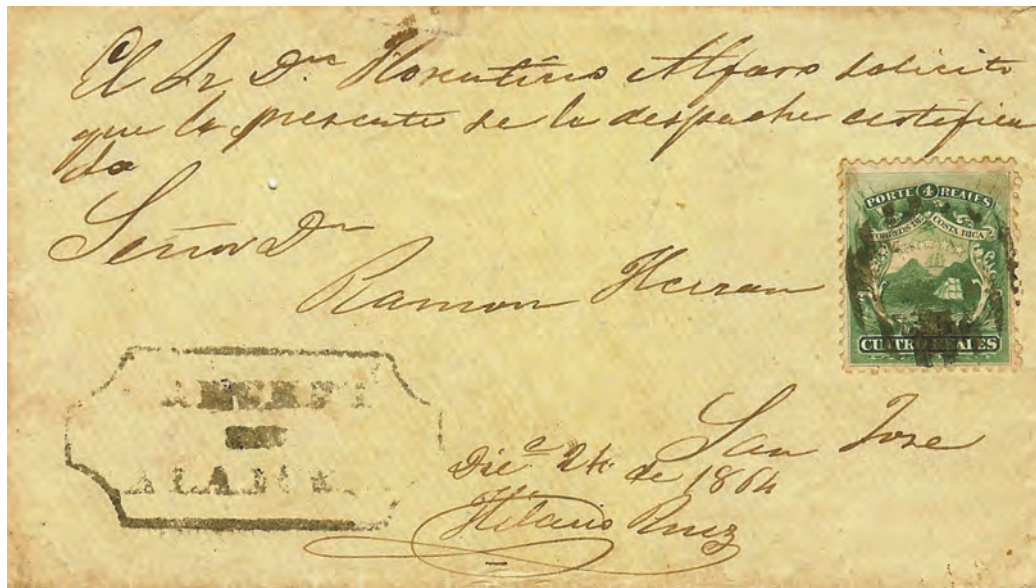 El Sr Dn Florentino Alfaro solicito
que la presente se le despache certifica
da
Señor Dn
Ramon Herran
PORTE 4 REALES
CORREOS DE COSTA RICA
CUATRO REALES
San Jose
Dice. 24 de 1864
Hilario
ALAJU